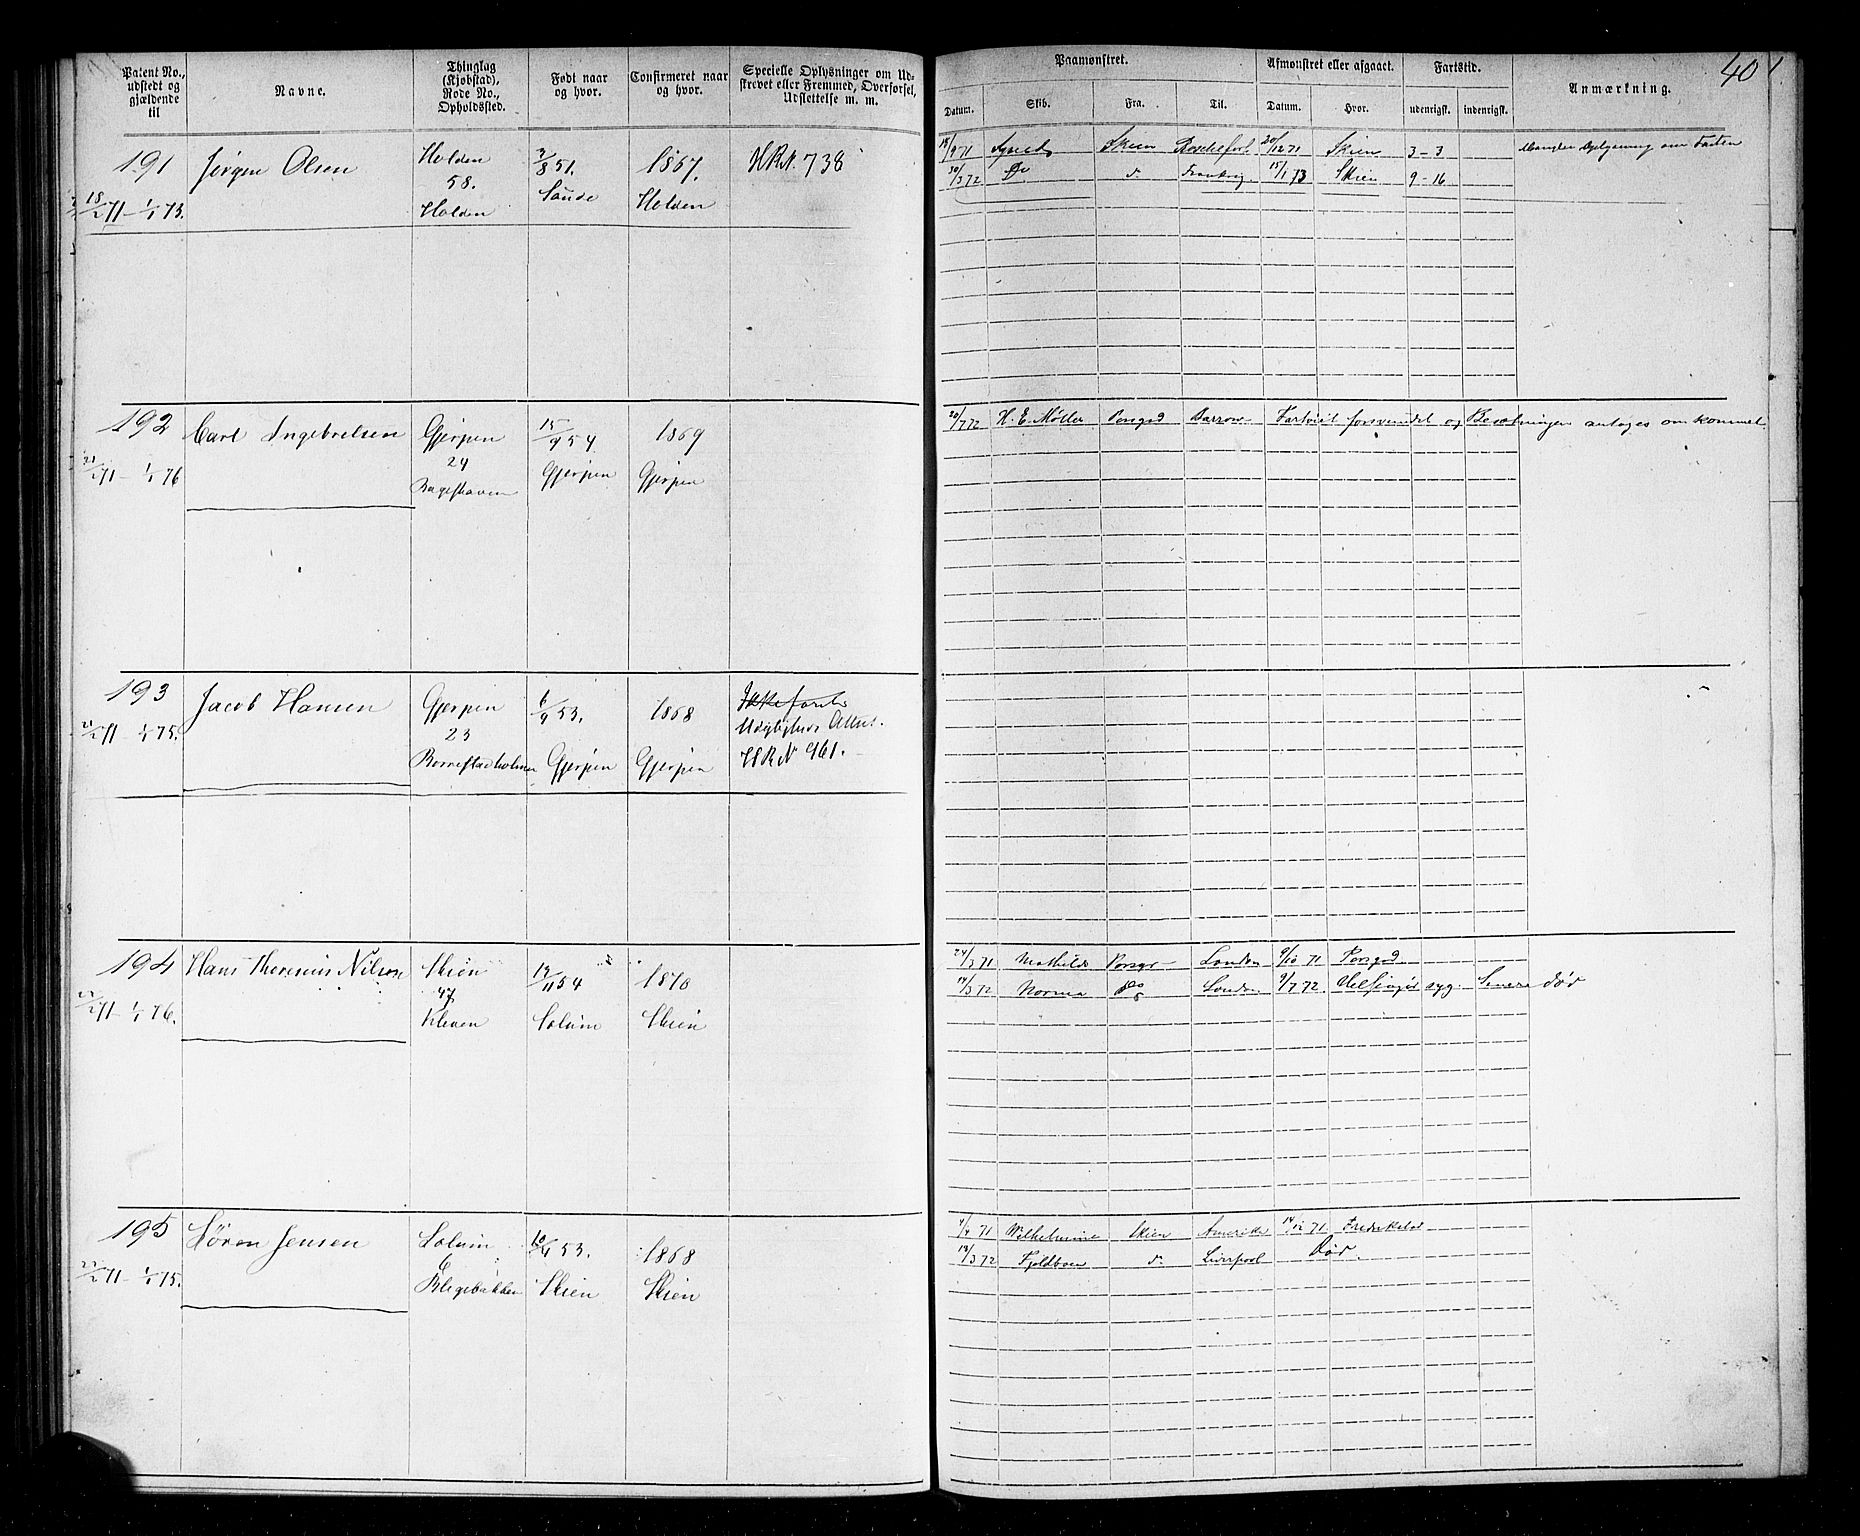 Patent No., udstedt og gjældende til
Navne.
Thinglag (Kjøbstad), Rode No., Opholdssted.
Født naar og hvor.
Confirmeret naar og hvor.
Specielle Oplysninger om Udskrevet eller Fremmed, Overførsel, Udslettelse m. m.
Paamønstret.
Afmønstret eller afgaaet.
Fartstid.
Anmærkning.
401
Datum.
Skib.
Fra.
Til.
Datum.
Hvor.
udenrigst.
indenrigst.
191
Jørgen Olsen
Holden
58.
Holden
51.
Saude
1867.
Holden
H.R.N. 738
18/2 71 - 1/1 73.
18/9 71 Skien 20/12 71 Skien 3-3 Mangler Oplysning om Farten
30/3 72 Do d. 15/1 73 Skien 9-16
192
Carl Ingebretsen
Gjerpen
24
15/9 54
Gjerpen
1869
Gjerpen
21/2 71 - 1/1 76
20/7 72 H. E. Møller Porsgd Barrow Fartøiet forsvundet og Besætningen antages omkommet
193
Jacob Hansen
Gjerpen
23
Borrestadholmen
6/9 53.
Gjerpen
1868
Gjerpen
HRN 961.
21/2 71 1/1 75.
194
Hans Theresius Nilsen
Skien
47
Kleven
19/11 54
Solum
1870
Skien
71 - 1/1 76.
24/3 71 Mathilde Porsgr London 9/10 71 Porsgd.
14/3 72 Norma Do London 9/7 72 Helsingør syg. Senere død
195
Sören Jensen
Solum
6
Blegebakken
53.
Skien
1868
Skien
71 - 1/1 75.
4/4 71 Wilhelmine Skien Amerika 14/12 71 Fredrikstad
14/3 72 Fjeldboen d. Liverpool Død.